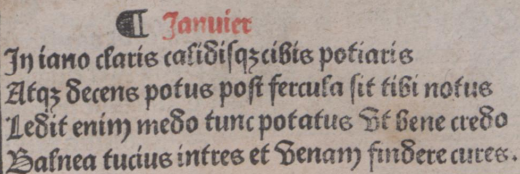 ¶ Januier
In iano claris calidisqꝫ cibis potiaris
Atqꝫ decens potus post fercula sit tibi notus
Ledit enim medo tunc potatus Vt bene credo
Balnea tucius intres et Venam findere cures.